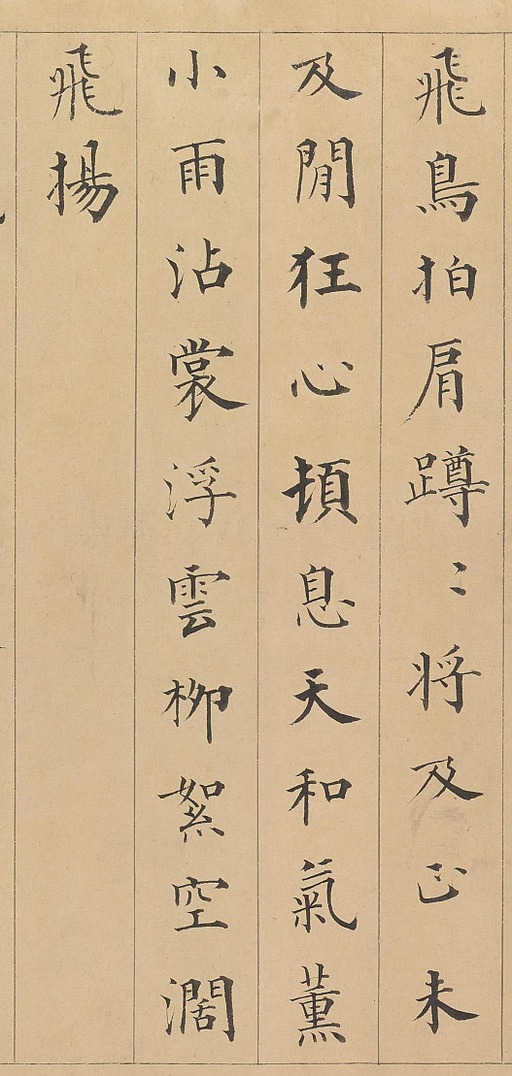 飛鳥拍肩蹲〻将及正未
及閒狂心頓息天和氣薰
小雨沾裳浮雲柳絮空濶
飛揚